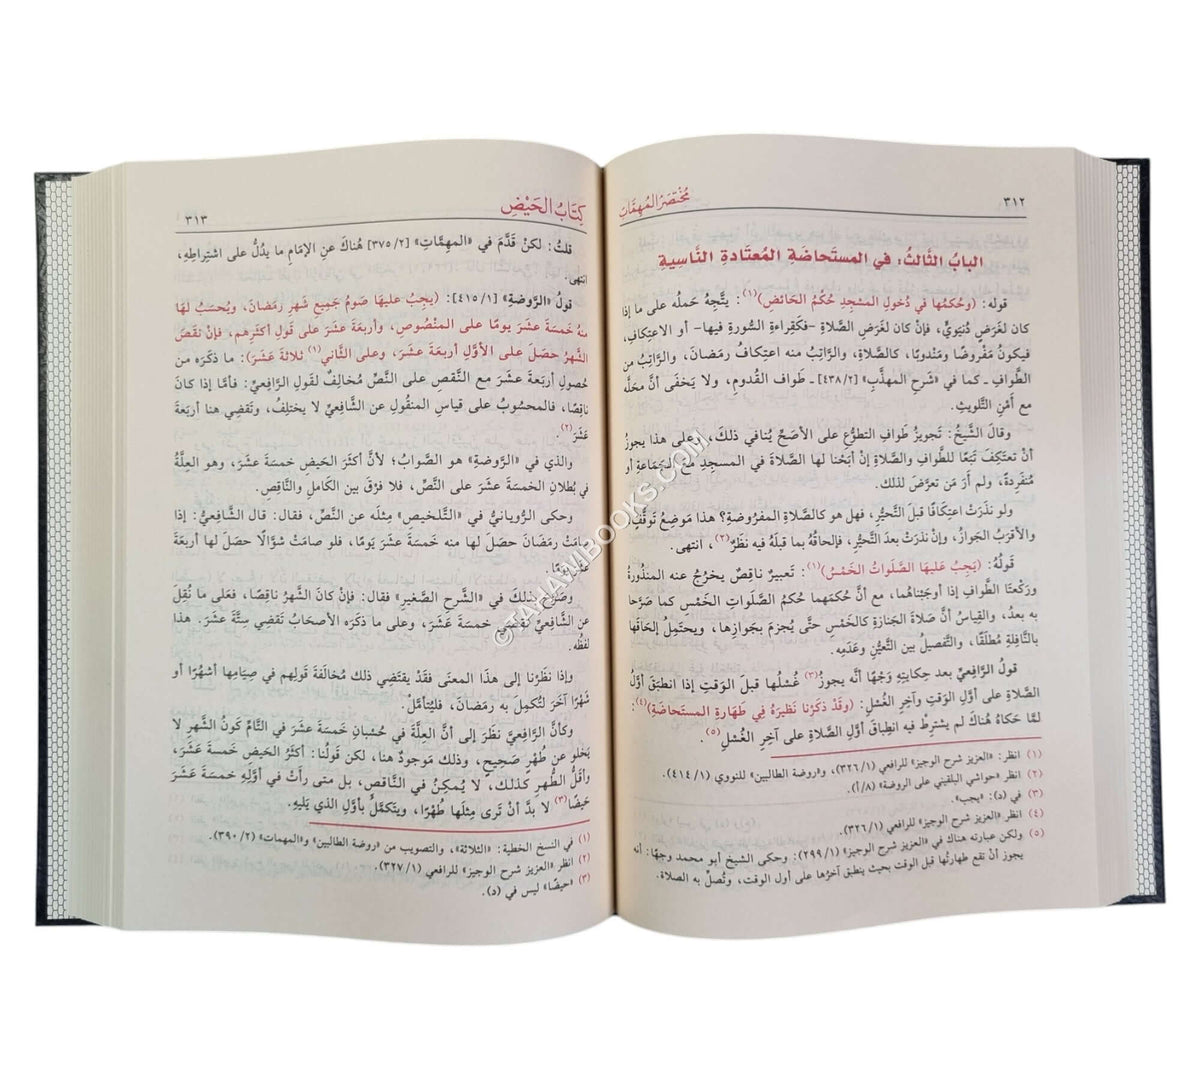 ٣١٢
مُخْتَصَرُ المُهِمَّات
البابُ الثَّالثُ: في المستَحاضَةِ المُعتَادةِ النَّاسِيةِ
قوله: (وحُكمُها في دُخولِ المسْجِدِ حُكمُ الحَائضِ)(١): يتَّجِهُ حَملُه على ما إذا
كان لغَرَضٍ دُنيَويٍّ، فإنْ كان لغَرَضِ الصَّلاةِ -كقِراءةِ السُّورةِ فيها- أو الاعتِكافِ،
فيكونُ مَفْروضًا ومَندوبًا، كالصَّلاةِ، والرَّاتِبُ منه اعتِكافُ رمَضانَ، والرَّاتِبُ من
الطَّوافِ ـ كما في «شَرحِ المهذَّبِ» [٤٣٨/٢] ـ طَوافُ القُدومِ، ولا يَخفَى أنَّ محَلَّه
مع أَمْنِ التَّلويثِ.
وقالَ الشَّيخُ: تَجويزُ طَوافِ التطوُّعِ على الأصَحِّ يُنافي ذلكَ، وعلى هذا يجوزُ
أنْ تعتَكِفَ تَبَعًا للطَّوافِ والصَّلاةِ إنْ أبَحْنا لها الصَّلاةَ في المسجدِ مع الجَماعةِ أو
مُنفَرِدةً، ولم أرَ مَن تعرَّضَ لذلك.
ولو نذَرَتْ اعتكافًا قبلَ التَّحيُّرِ، فهل هو كالصَّلاةِ المفرُوضةِ؟ هذا مَوضِعُ توَقُّفٍ
والأقرَبُ الجَوازُ، وإنْ نذَرَتْ بعدَ التَّحيُّرِ، فإلحاقُه بما قبلَهُ فيه نظَرٌ(٢)، انتهى.
قَولُهُ: (يَجِبُ عَليهَا الصَّلَواتُ الخَمْسُ)(١): تَعبيرٌ ناقِصٌ يخرُجُ عنه المنذُورةُ
ورَكْعتَا الطَّوافِ إذا أوجَبْناهما، مع أنَّ حُكمَهما حُكمُ الصَّلَواتِ الخَمسِ كما صَرَّحا
به بعدُ، والقِياسُ أنَّ صَلاةَ الجَنازةِ كالخَمْسِ حتَّى يُجزمَ بجَوازِها، ويحتَمِلُ إلحَاقُها
بالنَّافِلةِ مُطلَقًا، والتَّفصيلُ بين التَّعيُّنِ وعَدَمِه.
قولُ الرَّافِعيِّ بعد حِكايتِه وَجْهًا أنَّه يجوزُ(٣) غُسْلُها قبلَ الوَقتِ إذا انطبَقَ أوَّلُ
الصَّلاةِ على أوَّلِ الوَقتِ وآخِرِ الغُسْلِ: (وقَدْ ذكَرْنا نَظيرَهُ فِي طَهَارةِ المسْتَحاضَةِ)(٤):
لمَّا حَكاهُ هُناكَ لم يشترِطْ فيه انطِباقَ أوَّلِ الصَّلاةِ على آخِرِ الغُسْلِ(٥).
(١) انظر: «العزيز شرح الوجيز» للرافعي (٣٢٦/١)، و«روضة الطالبين» للنووي (٤١٤/١).
(٢) انظر «حواشي البلقيني على الروضة» (٨/أ).
(٣) في (د): «يجب».
(٤) انظر «العزيز شرح الوجيز» للرافعي (٣٢٦/١).
(٥) ولكن عبارته هناك في «العزيز شرح الوجيز» (٢٩٩/١): وحكى الشيخ أبو محمد وجهًا: أنه
يجوز أنْ تقع طهارتُها قبل الوقت بحيث ينطبق آخرُها على أول الوقت، وتُصلَّ به الصلاة.
كِتَابُ الحَيْضِ
٣١٣
قلتُ: لكنْ قَدَّمَ في «المهِمَّاتِ» [٣٧٥/٢] هُناكَ عنِ الإمَامِ ما يدُلُّ على اشتِراطِهِ،
انتهى.
قولُ «الرَّوضةِ» [٤١٥/١]: (يجِبُ عليهَا صَومُ جَميعِ شَهْرِ رمَضانَ، ويُحسَبُ لهَا
منهُ خَمسَةَ عشَرَ يومًا على المنْصُوصِ، وأربَعةَ عشَرَ على قَولِ أكثَرِهم، فإنْ نقَصَ
الشَّهرُ حصَلَ على الأوَّلِ أربعةَ عشَرَ، وعلى الثَّاني(١) ثلاثةَ عَشَرَ): ما ذكَرَه من
حُصولِ أربَعةَ عشَرَ مع النَّقصِ على النَّصِّ مُخالِفٌ لقَولِ الرَّافِعيِّ: فأمَّا إذا كانَ
ناقِصًا، فالمحسُوبُ على قِياسِ المنقُولِ عن الشَّافِعيِّ لا يختلِفُ، وتَقضِي هنا أربَعةَ
عشَرَ(٢).
والذي في «الرَّوضةِ» هو الصَّوابُ؛ لأنَّ أكثَرَ الحَيضِ خَمسةَ عشَرَ، وهو العِلَّةُ
في بُطلانِ الخَمسةَ عشَرَ على النَّصِّ، فلا فرْقَ بين الكامِلِ والنَّاقِصِ.
وحكَى الرُّويانيُّ في «التَّلخيصِ» مِثلَه عن النَّصِّ، فقال: قال الشَّافِعيُّ: إذا
صامَتْ رمَضانَ حصَلَ لها منه خَمسةَ عشَرَ يَومًا، فلو صامَتْ شَوَّالًا حصَلَ لها أربَعةَ
عشَرَ يومًا.
وصَرَّحَ بذلكَ في «الشَّرحِ الصَّغيرِ» فقال: فإنْ كانَ الشَّهرُ ناقِصًا، فعَلى ما نُقِلَ
عن الشَّافِعيِّ تَقضِي خَمسةَ عشَرَ، وعلى ما ذكَرَه الأصحَابُ تَقضِي ستَّةَ عشَرَ. هذا
لفظُه.
وإذا نظَرْنا إلى هذا المعنَى فقَدْ يقتَضِي ذلك مُخالَفةَ قَولِهم في صِيامِها أشهُرًا أو
شَهْرًا آخَرَ لتُكمِلَ به رمَضانَ، فليُتأمَّلْ.
وكأنَّ الرَّافِعيَّ نظَرَ إلى أنَّ العِلَّةَ في حُسْبانِ خَمسةَ عشَرَ في التَّامِّ كَونُ الشَّهرِ لا
يَخلو عن طُهْرٍ صَحيحٍ، وذلك مَوجودٌ هنا، لكن قَولُنا: أكثَرُ الحَيضِ خَمسةَ عشَرَ،
وأقلُّ الطُّهرِ كذلك، لا يُمكِنُ في النَّاقِصِ، بل متى رأتْ في أوَّلِه خَمسةَ عشَرَ
حَيضًا(٣) لا بدَّ أنْ ترَى مِثلَها طُهْرًا، ويتَكمَّلُ بأوَّلِ الذي يَليهِ.
(١) في النسخ الخطية: «الثلاثة»، والتصويب من «روضة الطالبين» و«المهمات» (٣٩٠/٢).
(٢) انظر «العزيز شرح الوجيز» للرافعي (٣٢٧/١).
(٣) «حيضًا» ليس في (د).
©TAHAWIBOOKS.COM